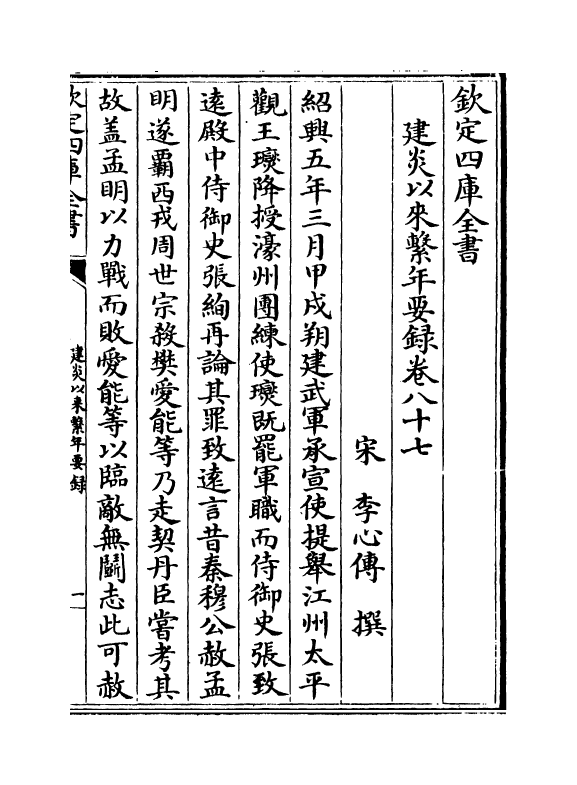 欽定四庫全書
建炎以來繫年要録卷八十七
宋 李心傳 撰
紹興五年三月甲戌朔建武軍承宣使提舉江州太平
觀王𤫉降授濠州團練使𤫉既罷軍職而侍御史張致
逺殿中侍御史張絢再論其罪致逺言昔秦穆公赦孟
明遂霸西戎周世宗殺樊愛能等乃走契丹臣嘗考其
故盖孟明以力戰而敗愛能等以臨敵無鬬志此可赦
欽定四庫全書
建炎以来繫年要録
一